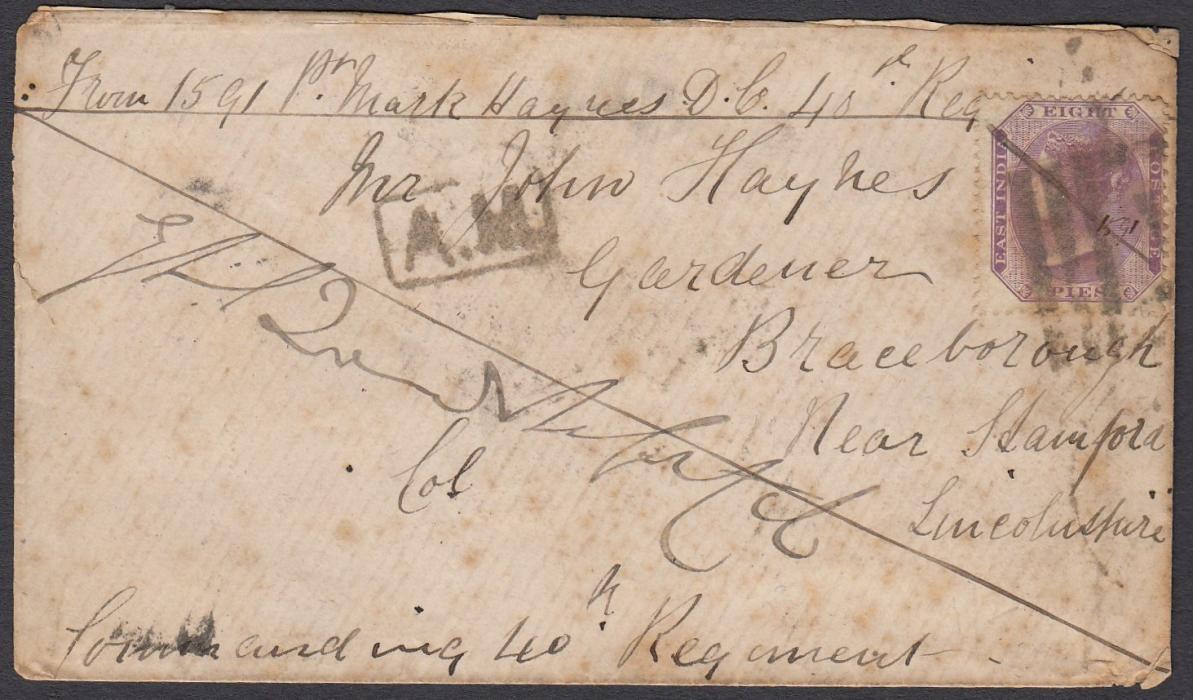 From 1591 Pr. Mark Haynes D.C. 40th Reg
Mr John Haynes
A.M.
Gardener
Braceborough
Near Stamford
Lincolnshire
EIGHT
EAST INDIA
PIES
1591
Col
Commanding 40th Regiment